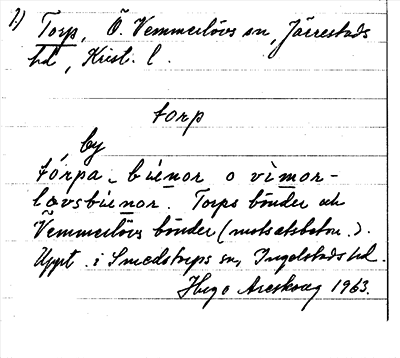 1) Torp, Ö. Vemmerlövs sn, Järrestads
hd, Krist. l.
torp
by
tórpa- bienor o vìmor-
lovsbienor. Torps bönder och
Vemmerlövs bönder (motsatsbeton.).
Uppt. i Smedstorps sn, Ingelstads hd.
Hugo Areskoug 1963.